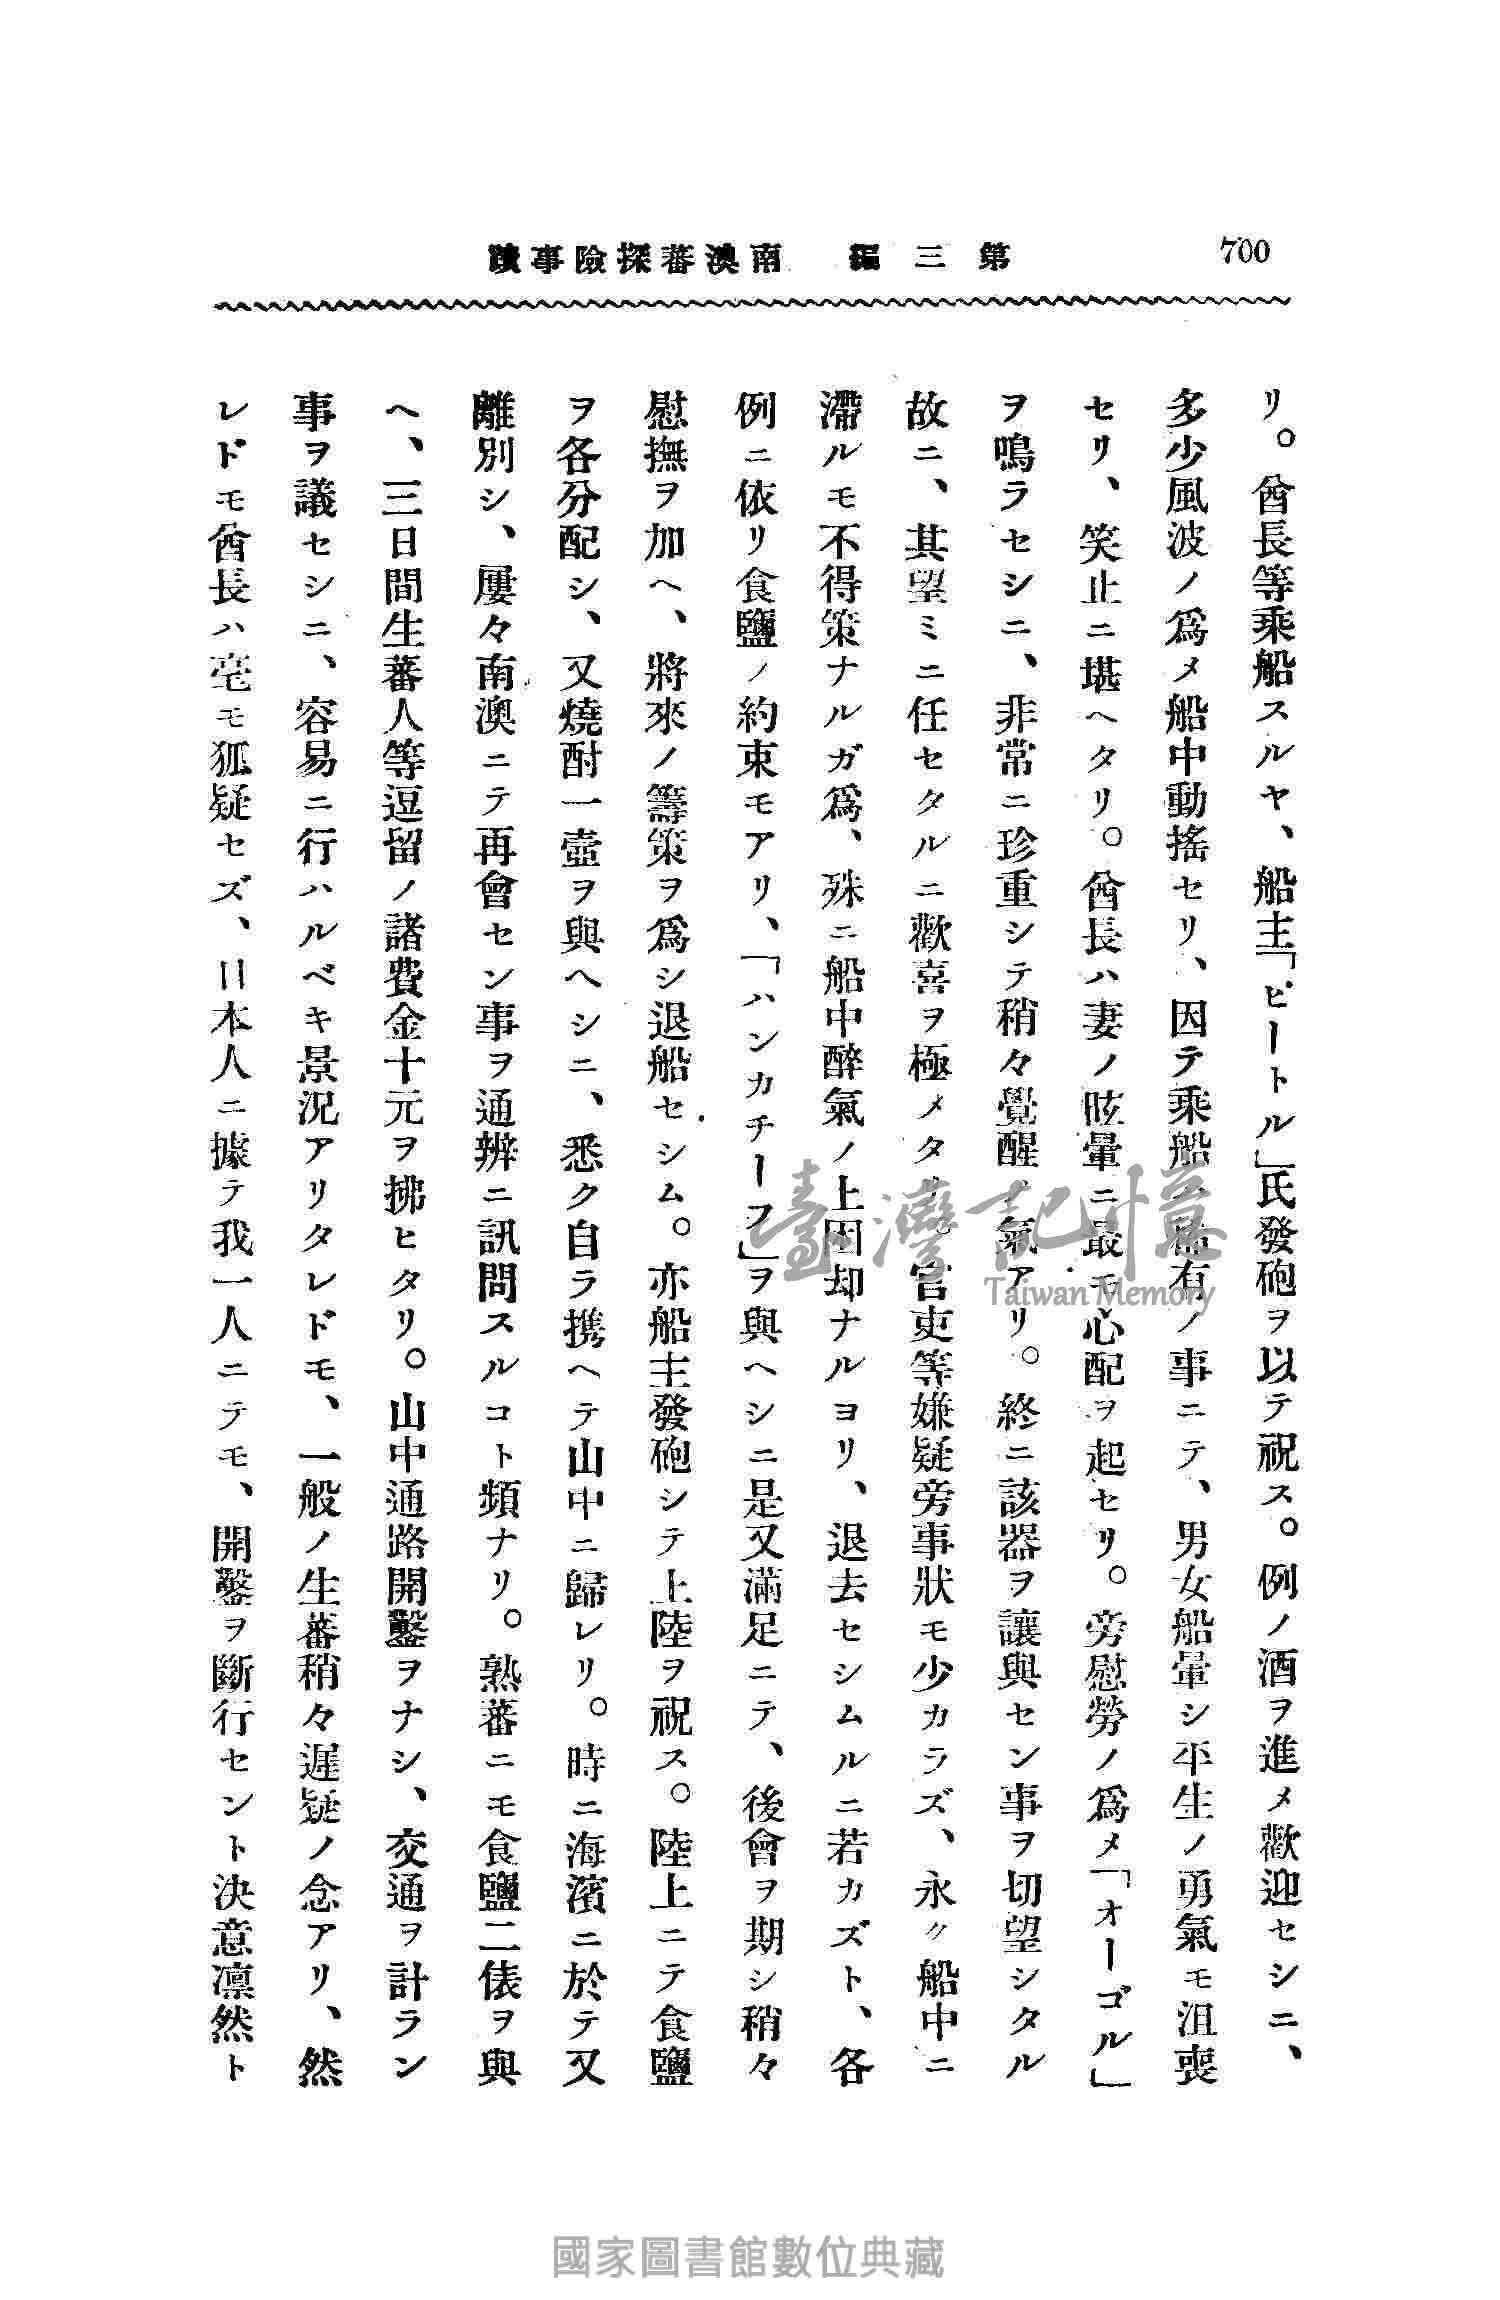 700
第三編　南澳蕃探險事蹟
リ。酋長等乘船スルヤ、船主「ピートル」氏發砲ヲ以テ祝ス。例ノ酒ヲ進メ歡迎セシニ、
多少風波ノ爲メ船中動搖セリ、因テ乘船ハ稀有ノ事ニテ、男女船暈シ平生ノ勇氣モ沮喪
セリ、笑止ニ堪ヘタリ。酋長ハ妻ノ眩暈ニ最モ心配ヲ起セリ。旁慰勞ノ爲メ「オーゴル」
ヲ鳴ラセシニ、非常ニ珍重シテ稍々覺醒ノ氣アリ。終ニ該器ヲ讓與セン事ヲ切望シタル
故ニ、其望ミニ任セタルニ歡喜ヲ極メタリ。官吏等嫌疑旁事狀モ少カラズ、永ク船中ニ
滯ルモ不得策ナルガ爲、殊ニ船中醉氣ノ上困却ナルヨリ、退去セシムルニ若カズト、各
例ニ依リ食鹽ノ約束モアリ、「ハンカチーフ」ヲ與ヘシニ是又滿足ニテ、後會ヲ期シ稍々
慰撫ヲ加ヘ、將來ノ籌策ヲ爲シ退船セシム。亦船主發砲シテ上陸ヲ祝ス。陸上ニテ食鹽
ヲ各分配シ、又燒酎一壺ヲ與ヘシニ、悉ク自ラ携ヘテ山中ニ歸レリ。時ニ海濱ニ於テ又
離別シ、屢々南澳ニテ再會セン事ヲ通辨ニ訊問スルコト頻ナリ。熟蕃ニモ食鹽二俵ヲ與
ヘ、三日間生蕃人等逗留ノ諸費金十元ヲ拂ヒタリ。山中通路開鑿ヲナシ、交通ヲ計ラン
事ヲ議セシニ、容易ニ行ハルベキ景況アリタレドモ、一般ノ生蕃稍々遲疑ノ念アリ、然
レドモ酋長ハ毫モ狐疑セズ、日本人ニ據テ我一人ニテモ、開鑿ヲ斷行セント決意凛然ト
臺灣記憶
Taiwan Memory
國家圖書館數位典藏